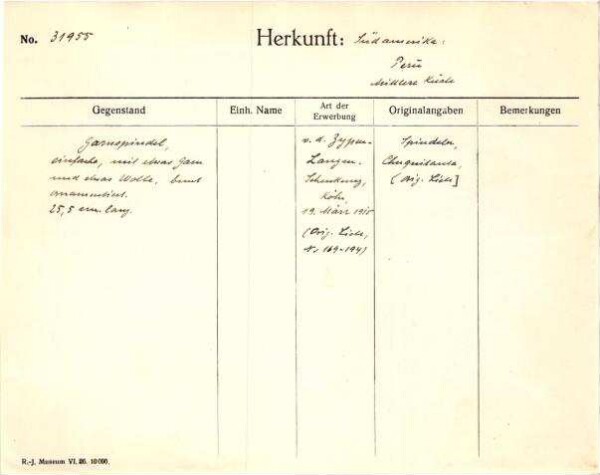 No. 31955
Herkunft: Südamerika:
Peru
Mittlere Küste
Gegenstand Einh. Name Art der Erwerbung Originalangaben Bemerkungen
Garnspindel,
einfache, mit etwas Garn
und etwas Wolle, bunt
ornamentiert.
25,5 cm lang.
v. d. Zypen-
Langen.
Schenkung,
Köln,
19. März 1915
(Orig. Liste,
169-194)
Spindeln,
Chuquitanta,
(Orig. Liste]
R.-J. Museum VI. 26. 10000.